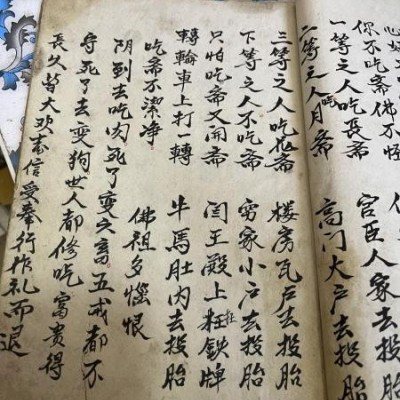 你不吃斋佛不怪
一等之人吃長斋 官臣人家去投胎
二等之人吃月斋 高门大户去投胎
三等之人吃花斋 楼房瓦户去投胎
下等之人不吃斋 穷家小户去投胎
只怕吃斋又开斋 闫王殿上鉄牌
轉輪車上打一轉 牛馬肚内去投胎
吃斋不潔净 佛祖多惱恨
阴到去吃肉死了变之畜五戒都不
守死了去变狗世人都修吃富贵得
長久皆大欢喜信受奉行作礼而退